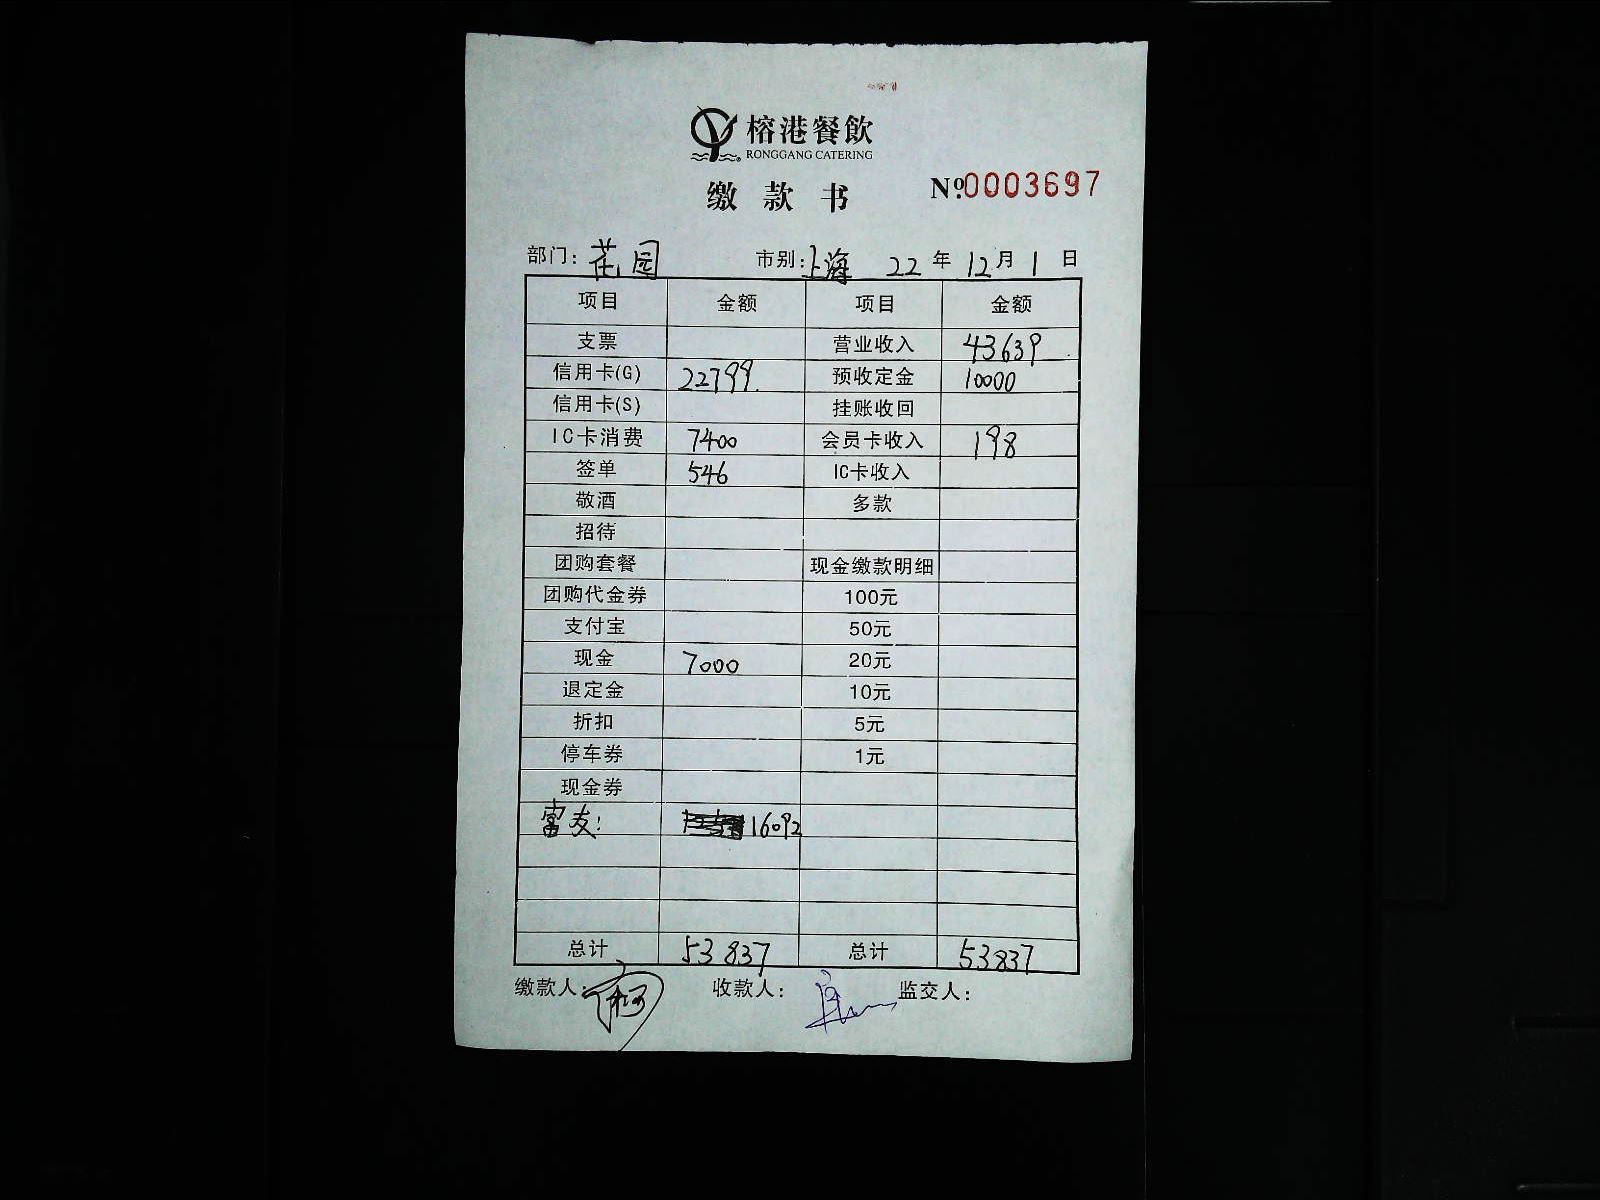 榕港餐飲
RONGGANG CATERING
缴款书 №.0003697
部门: 花园 市别: 上海 22 年 12 月 1 日
项目 金额 项目 金额
支票 营业收入 43639
信用卡(G) 22799. 预收定金 10000
信用卡(S) 挂账收回
IC卡消费 7400 会员卡收入 198
签单 546 IC卡收入
敬酒 多款
招待
团购套餐 现金缴款明细
团购代金券 100元
支付宝 50元
现金 7000 20元
退定金 10元
折扣 5元
停车券 1元
现金券
富友: 16092
总计 53837 总计 53837
缴款人: 收款人: 监交人: